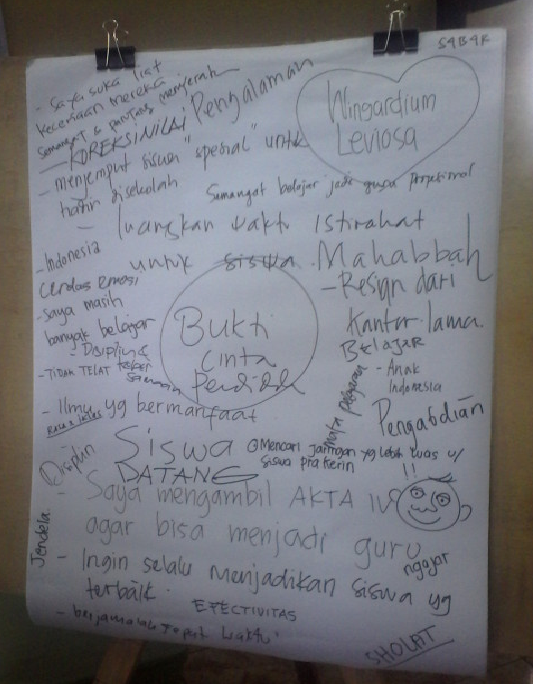 SABAR
- Saya suka liat
keceriaan mereka
semangat & pantas menyerah
- KOREKSI NILAI
Pengalaman
Wingardium
Leviosa
- menjemput siswa "spesial" untuk
hadir disekolah
Semangat belajar jadi guru profesional
- luangkan waktu Istirahat
untuk siswa
- Indonesia
Cerdas Emosi
- Saya masih
banyak belajar
- Disiplin &
- TIDAK TELAT
Mahabbah
- Resign dari
Kantor lama
BELAJAR
- Anak
Indonesia
Bukti
Cinta
Pendidik
- Ilmu yg bermanfaat
Pengabdian
Disiplin
Siswa
DATANG
@Mencari jaringan yg lebih luas u/
siswa prakerin
- Saya mengambil AKTA IV
agar bisa menjadi guru
!!
ngajar
Jendela
- Ingin selalu menjadikan siswa yg
terbaik.
EFECTIVITAS
- berjamaah tepat waktu
SHOLAT